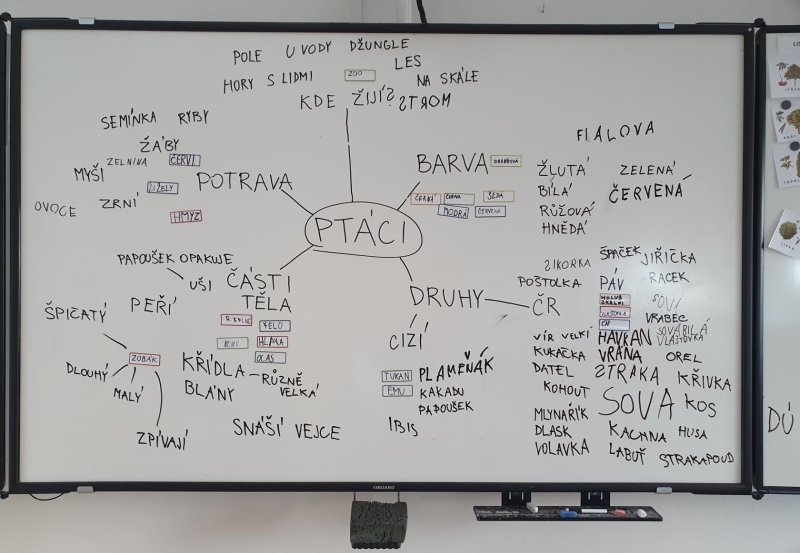 POLE U VODY DŽUNGLE
HORY S LIDMI ZOO LES
NA SKÁLE
KDE ŽIJÍ? STROM
SEMÍNKA RYBY
ŽÁBY
ZELNINA ČERVI
MYŠI
ŽÍŽELY
OVOCE ZRNÍ
HMYZ
POTRAVA
PTÁCI
BARVA ORANŽOVÁ
FIALOVA
ČERNÁ ŠEDÁ
MODRÁ ČERVENÁ
ŽLUTÁ ZELENÁ
BÍLÁ ČERVENÁ
RŮŽOVÁ
HNĚDÁ
PAPOUŠEK OPAKUJE
UŠI
ČÁSTI
TĚLA
ŠPIČATÝ PEŘÍ
TĚLO
HLAVA
OCAS
ZOBÁK
DLOUHÝ
MALÝ
ZPÍVAJÍ
KŘÍDLA RŮZNĚ
VELKÁ
BLÁNY
SNÁŠÍ VEJCE
DRUHY
CIZÍ
TUKAN PLAMEŇÁK
EMU KAKADU
PAPOUŠEK
IBIS
ČR
SIKORKA ŠPAČEK JIŘIČKA
POŠTOLKA PÁV RACEK
HOLUB
SKALNÍ
SOVI
VRABEC
VÍR VELKÍ HAVRAN SOVA BÍLÁ
VLAŠTOVKA
KUKAČKA VRÁNA OREL
DATEL STRAKA KŘIVKA
KOHOUT SOVA KOS
MLYNAŘÍK
DLASK KACHNA HUSA
VOLAVKA LABUŤ STRAKAPOUD
DÚ